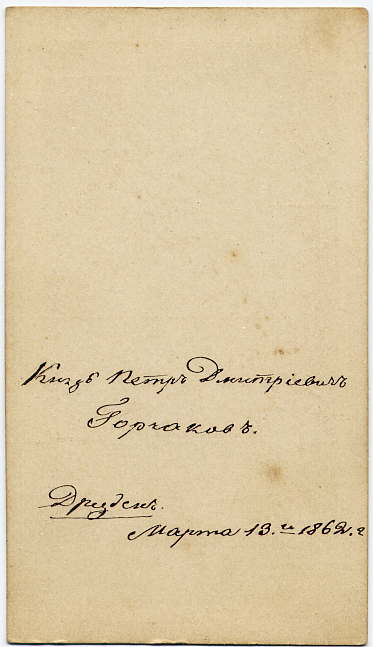 Князь Петръ Дмитріевичъ
Горчаковъ.
Дрезденъ.
Марта 13.го 1862.г